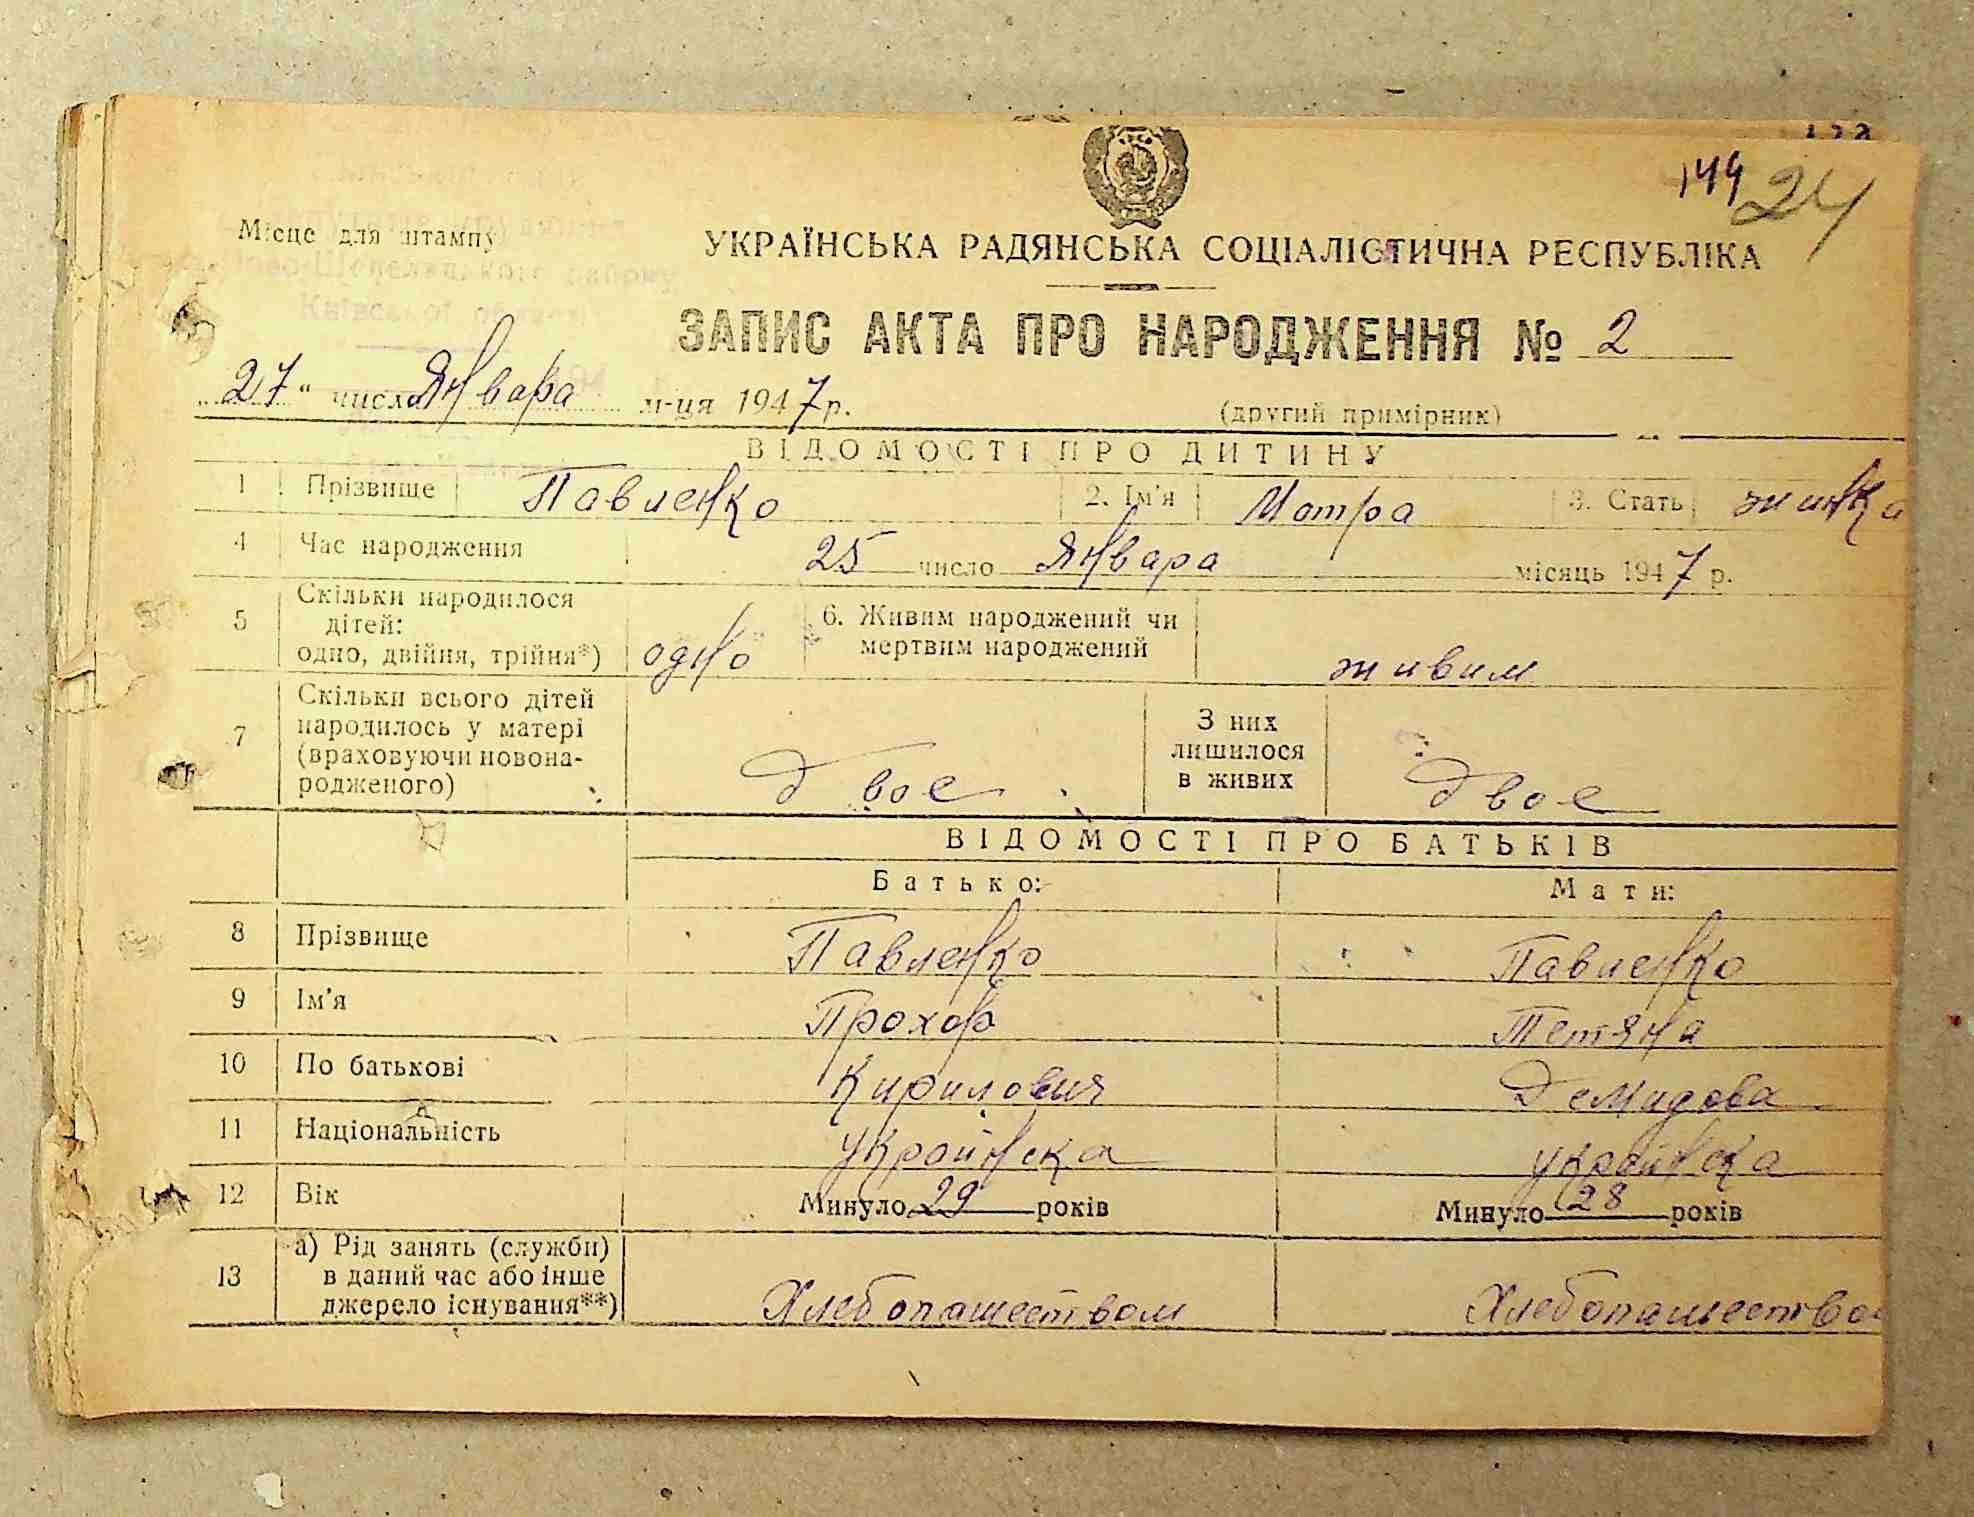 144 24
Місце для штампу
УКРАЇНСЬКА РАДЯНСЬКА СОЦІАЛІСТИЧНА РЕСПУБЛІКА
Київської області
ЗАПИС АКТА ПРО НАРОДЖЕННЯ № 2
„27“ число Января м-ця 1947 р.
(другий примірник)
ВІДОМОСТІ ПРО ДИТИНУ
1 Прізвище Павленко 2. Ім'я Мотра 3. Стать жинка
4 Час народження 25 число Января місяць 1947 р.
5 Скільки народилося
дітей:
одно, двійня, трійня*) одно
6. Живим народжений чи
мертвим народжений живим
7 Скільки всього дітей
народилось у матері
(враховуючи новона-
родженого) двое
З них
лишилося
в живих двое
ВІДОМОСТІ ПРО БАТЬКІВ
Батько: Мати:
8 Прізвище Павленко Павленко
9 Ім'я Прохор Тетяна
10 По батькові Кирилович Демидова
11 Національність украйнска украйнска
12 Вік Минуло 29 років Минуло 28 років
13 а) Рід занять (служби)
в даний час або інше
джерело існування**) Хлебопашеством Хлебопашество